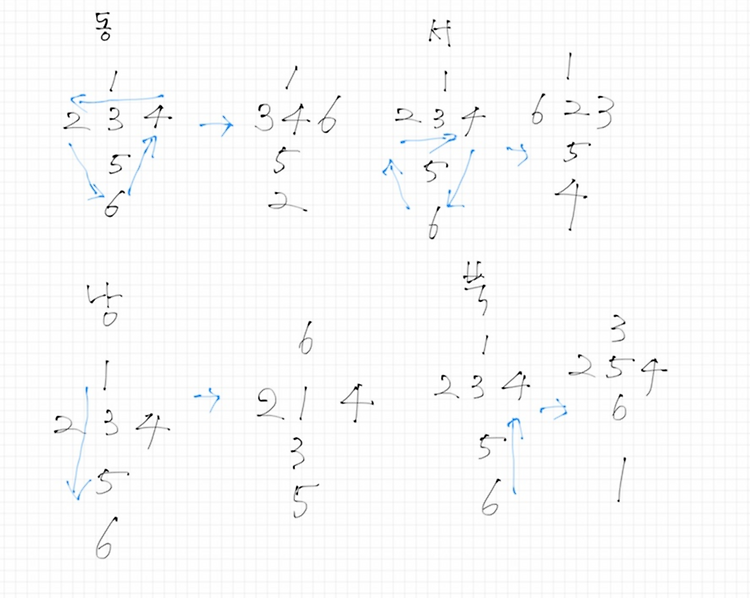 동
1
2 3 4
5
6
1
3 4 6
5
2
서
1
2 3 4
5
6
1
6 2 3
5
4
남
1
2 3 4
5
6
6
2 1 4
3
5
북
1
2 3 4
5
6
3
2 5 4
6
1